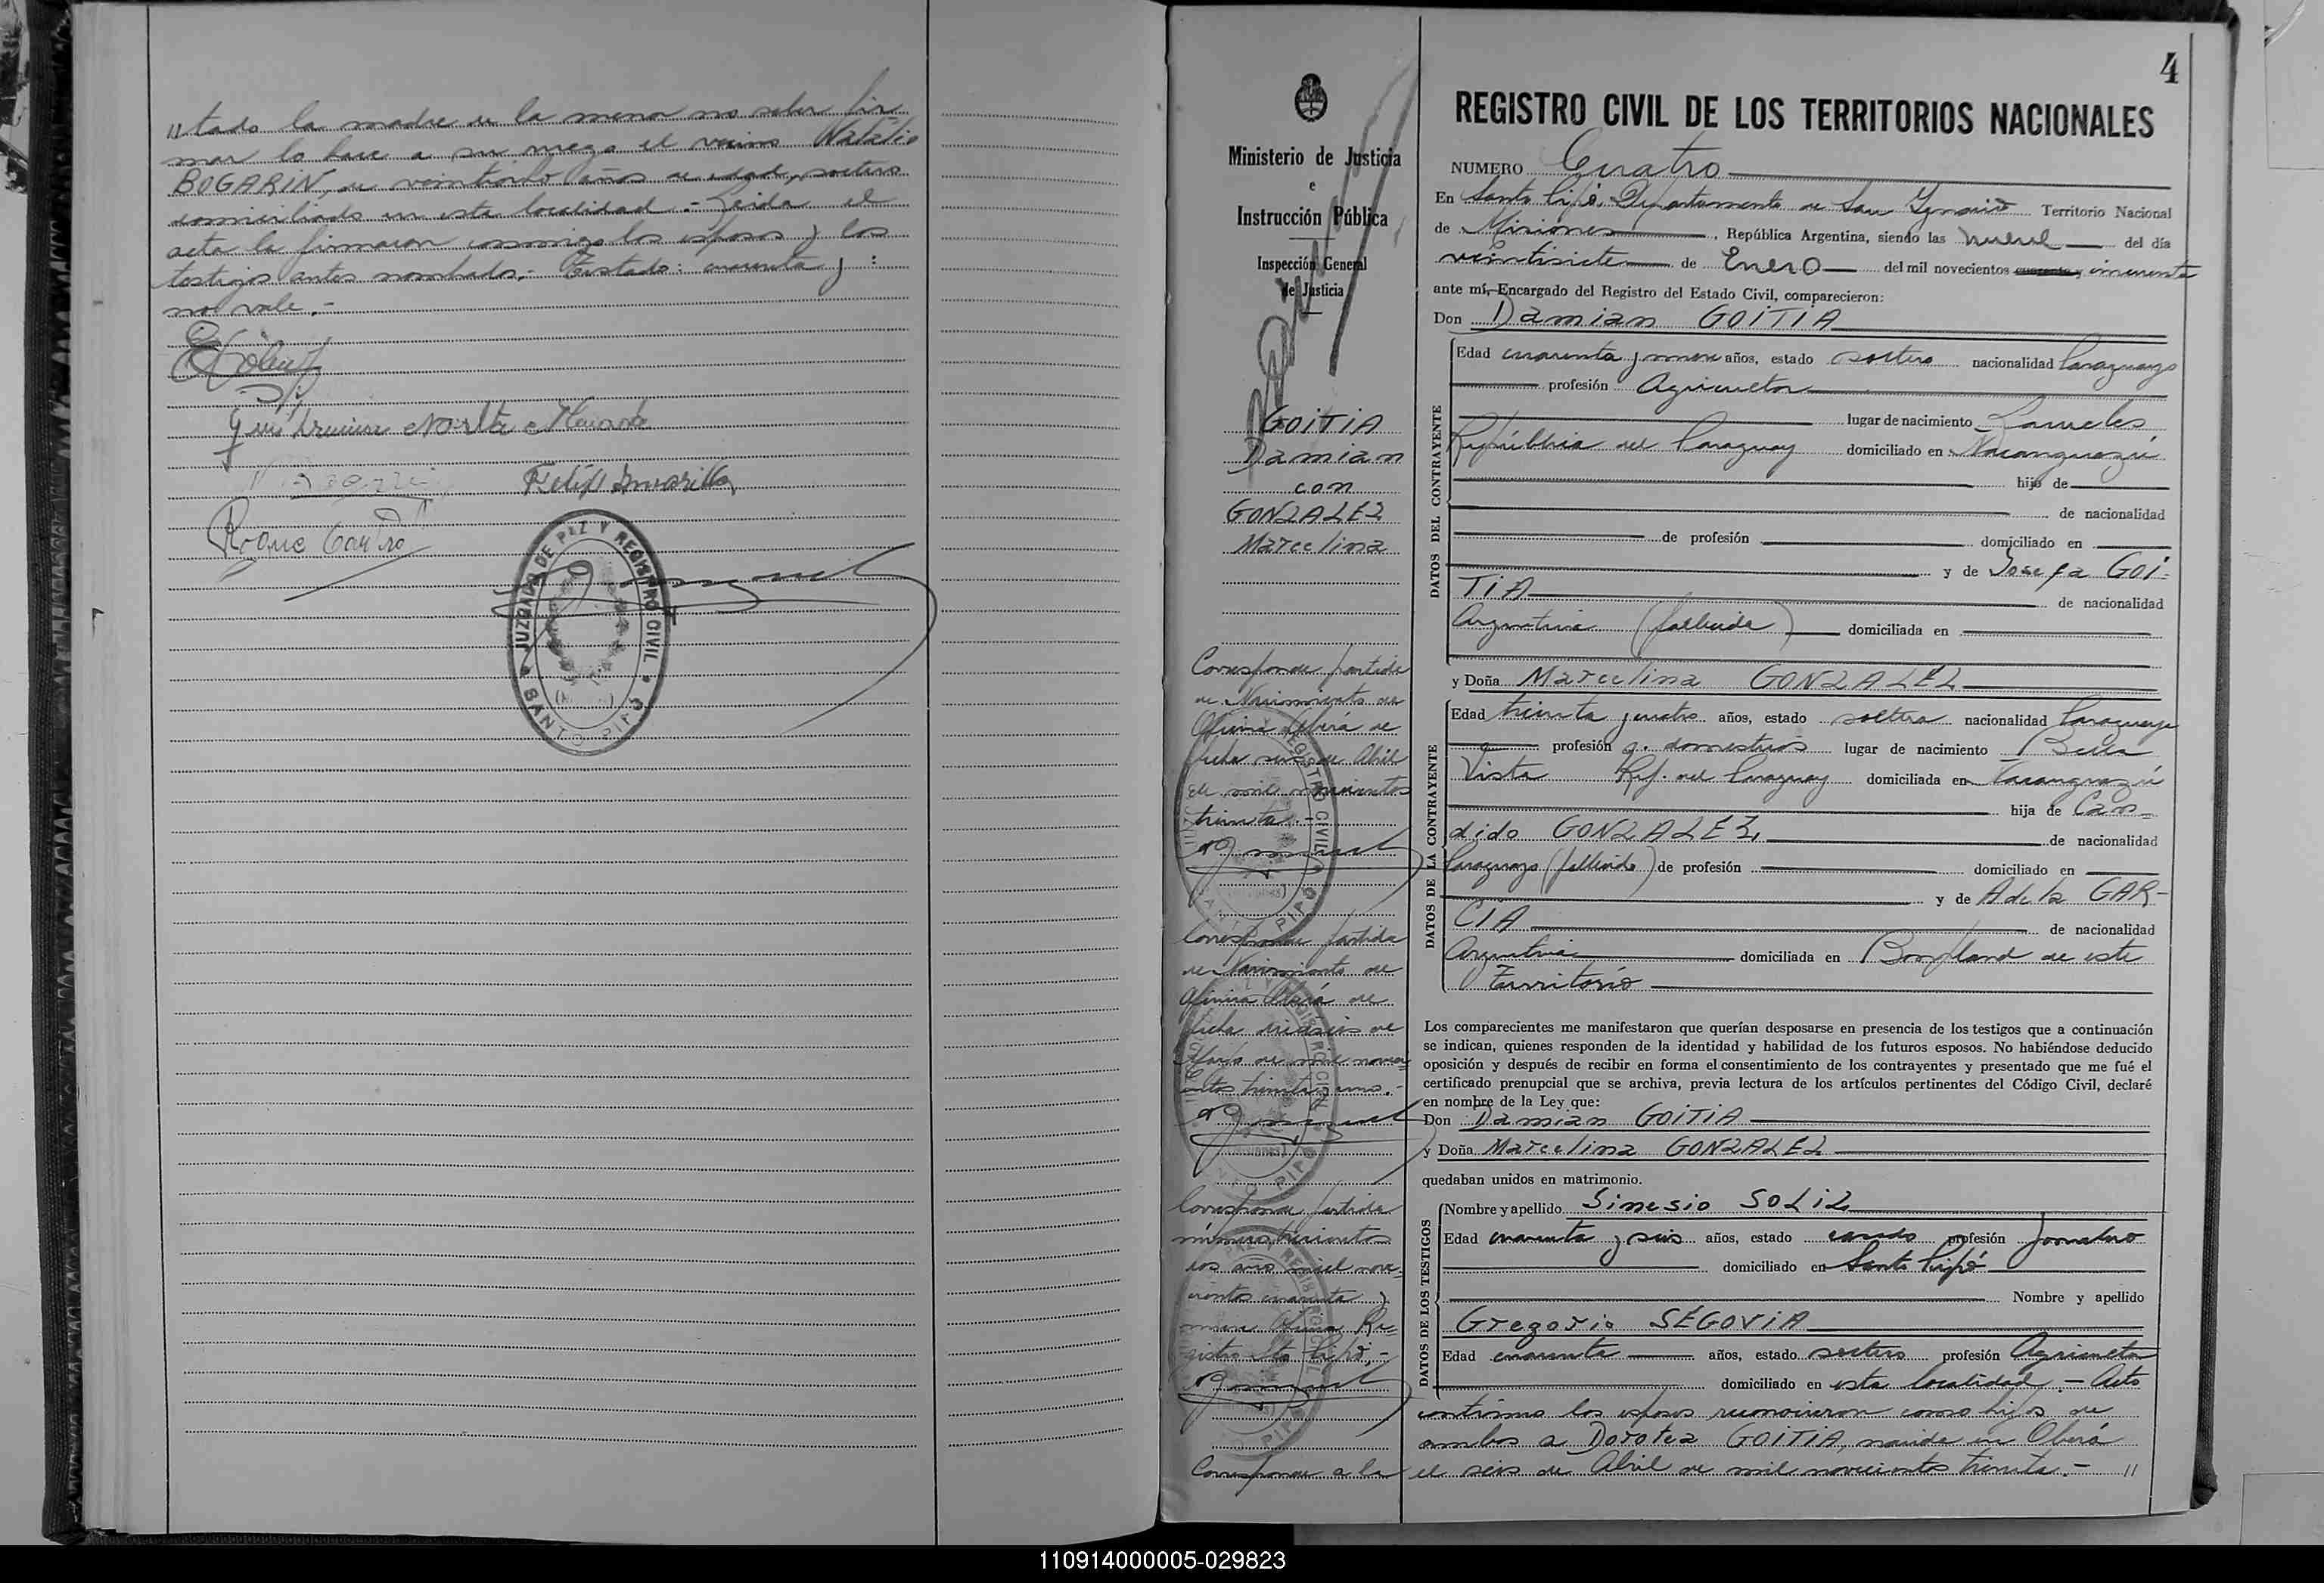 "tado la madre de la menor no saber fir-
mar lo hace a su ruego el vecino Natalio
BOGARIN, de veintiocho años de edad, soltero
domiciliado en esta localidad.- Leida el
acta la firmaron conmigo los esposos y los
testigos antes nombrados.- Testado: cuarenta y :
no vale.-
Felipe Amarilla
Roque Castro
JUZGADO DE PAZ Y REGISTRO CIVIL
SANTO PIPÓ
4
Ministerio de Justicia
e
Instrucción Pública
Inspección General
de Justicia
GOITIA
Damian
con
GONZALEZ
Marcelina
Corresponde partida
de Nacimiento de
Oficina Oberá de
fecha seis de Abril
de mil novecientos
treinta.-
Corresponde partida
de Nacimiento de
Oficina Oberá de
fecha dieciseis de
Mayo de mil nove-
cientos treinta y uno.-
Corresponde partida
número
dos año mil nove-
cientos cuarenta y
nueve Oficina Re-
gistro Sto Pipó.-
Corresponde a la
REGISTRO CIVIL DE LOS TERRITORIOS NACIONALES
NUMERO Cuatro
En Santo Pipó, Departamento de San Ignacio Territorio Nacional
de Misiones, República Argentina, siendo las nueve del día
veintisiete de Enero del mil novecientos cuarenta y cincuenta
ante mí, Encargado del Registro del Estado Civil, comparecieron:
Don Damian GOITIA
DATOS DEL CONTRAYENTE
Edad cuarenta y nueve años, estado soltero nacionalidad Paraguayo
profesión Agricultor
lugar de nacimiento Laureles
República del Paraguay domiciliado en Ñacanguazú
hijo de
de nacionalidad
de profesión domiciliado en
y de Josefa GOI-
TIA de nacionalidad
Argentina (fallecida) domiciliada en
y Doña Marcelina GONZALEZ
DATOS DE LA CONTRAYENTE
Edad treinta y cuatro años, estado soltera nacionalidad Paraguaya
profesión q. domesticos lugar de nacimiento Bella
Vista Rep. del Paraguay domiciliada en Ñacanguazú
hija de Can-
dido GONZALEZ, de nacionalidad
Paraguayo (fallecido) de profesión domiciliado en
y de Adela GAR-
CIA de nacionalidad
Argentina domiciliada en Bompland de este
Territorio
Los comparecientes me manifestaron que querían desposarse en presencia de los testigos que a continuación
se indican, quienes responden de la identidad y habilidad de los futuros esposos. No habiéndose deducido
oposición y después de recibir en forma el consentimiento de los contrayentes y presentado que me fué el
certificado prenupcial que se archiva, previa lectura de los artículos pertinentes del Código Civil, declaré
en nombre de la Ley que:
Don Damian GOITIA
y Doña Marcelina GONZALEZ
quedaban unidos en matrimonio.
DATOS DE LOS TESTIGOS
Nombre y apellido Sinesio SOLIZ
Edad cuarenta y seis años, estado casado profesión Jornalero
domiciliado en Santo Pipó
Nombre y apellido
Gregorio SEGOVIA
Edad cuarenta años, estado soltero profesión Agricultor
domiciliado en esta localidad.- Acto
continuo los esposos reconocieron como hijos de
ambos a Dorotea GOITIA, nacida en Oberá
el seis de Abril de mil novecientos treinta.- "
110914000005-029823